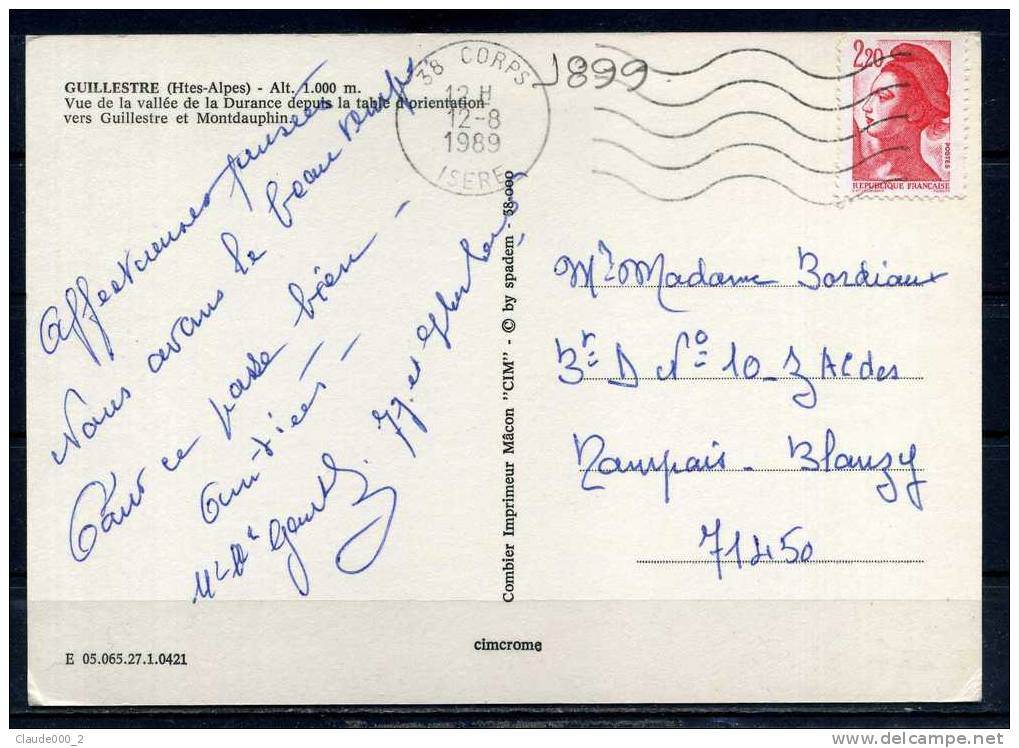 GUILLESTRE (Htes-Alpes) - Alt. 1.000 m.
Vue de la vallée de la Durance depuis la table d'orientation
vers Guillestre et Montdauphin.
38 CORPS
12 H
12-8
1989
ISERE
1899
2,20
POSTES
REPUBLIQUE FRANÇAISE
Affectueuses pensées
Nous avons le beau temps
Tout se passe bien -
Amitiés -
Combier Imprimeur Mâcon "CIM" - © by spadem - 38.000
Mr Madame Bordiaux
D N° 10
Blanzy
71450
E 05.065.27.1.0421
cimcrome
Claude000_2
www.delcampe.net